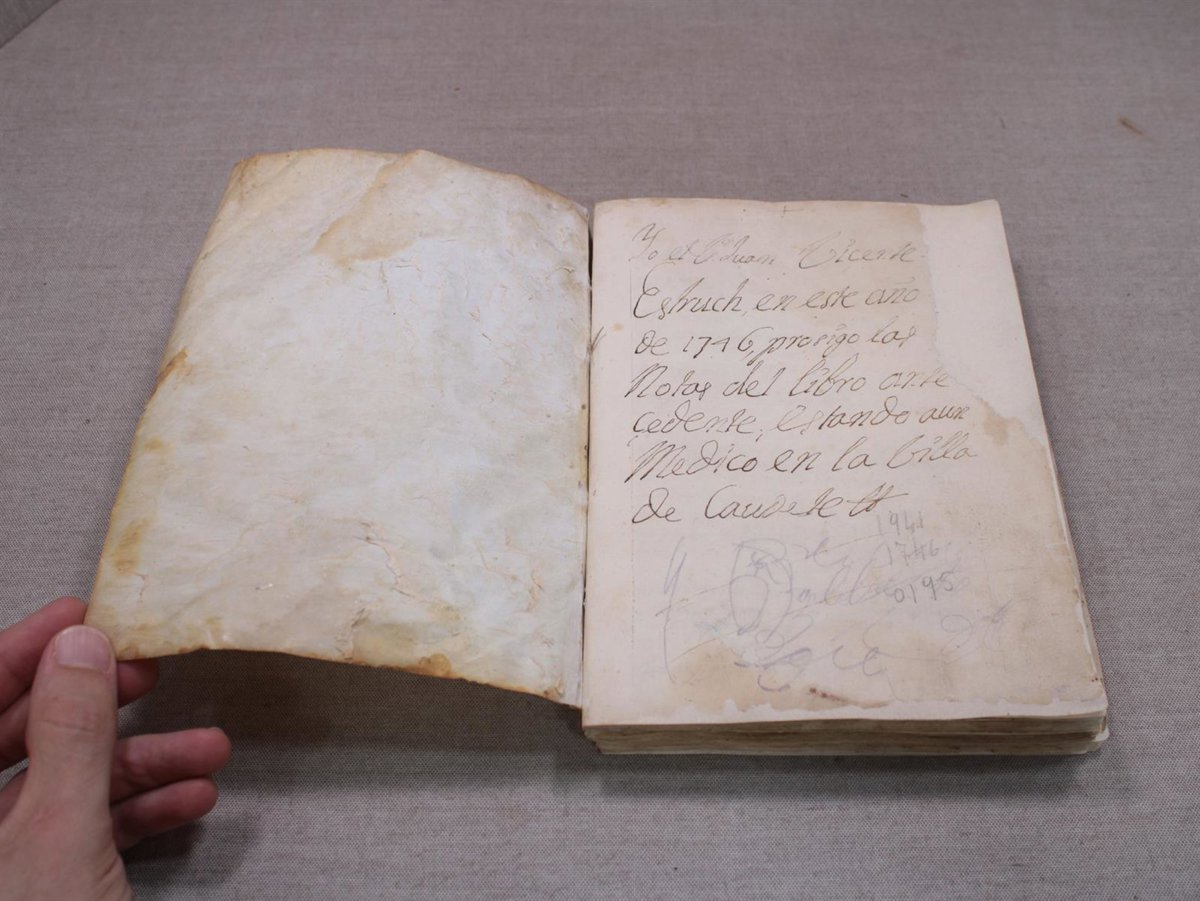 Yo el Dr Juan Vicente
Estruch, en este año
de 1746, prosigo las
Notas del libro ante
cedente, estando aun
Medico en la Villa
de Caudete
1941
1746
0195